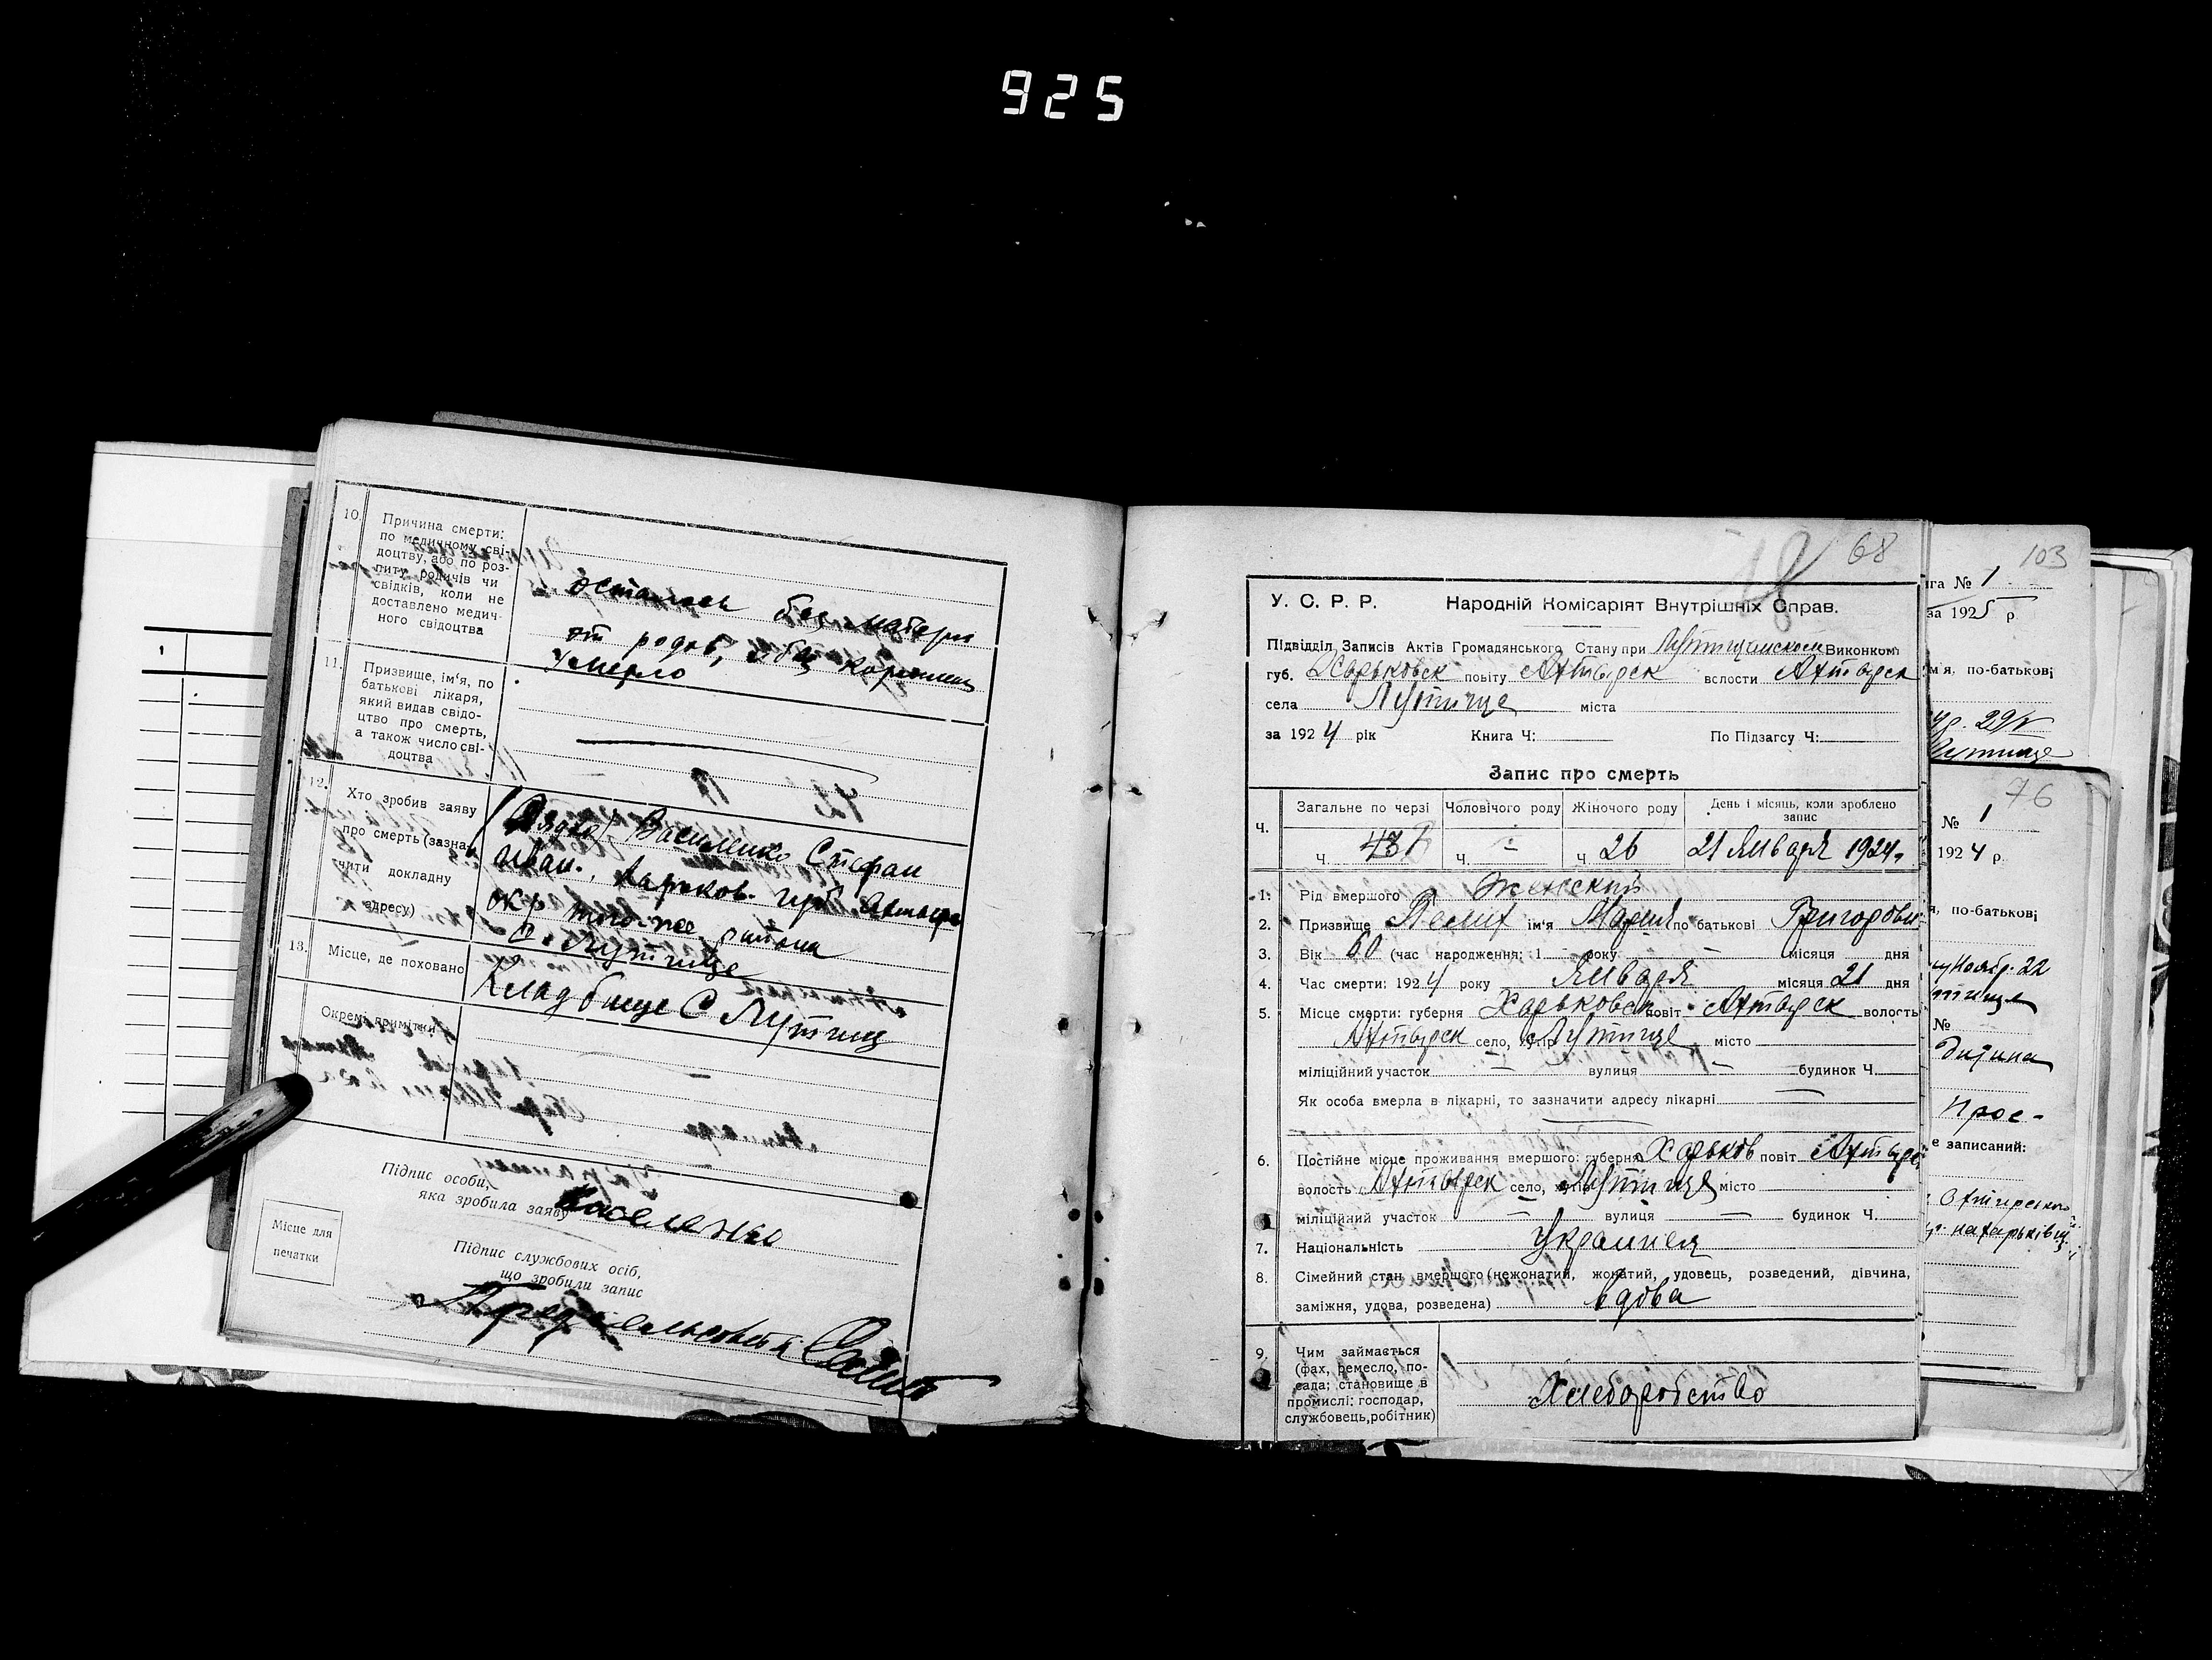 925
10.
Причина смерти:
по медичному сві-
доцтву, або по роз-
питу родичів чи
свідків, коли не
доставлено медич-
ного свідоцтва
осталось без матери
от родов, и без
умерло
11.
Призвище, ім'я, по
батькові лікаря,
який видав свідо-
цтво про смерть,
а також число сві-
доцтва
12.
Хто зробив заяву
про смерть (зазна-
чити докладну
адресу)
(Дядя) Василенко Стефан
Иван., Харьков. губ.
окр того же района
с. Лутище
13.
Місце, де поховано
Кладбище с Лутищ
Окремі примітки
Підпис особи,
яка зробила заяву
Місце для
печатки
Підпис службових осіб,
що зробили запис
Пред сельсовета
68
У. С. Р. Р. Народній Комісаріят Внутрішніх Справ.
Підвідділ Записів Актів Громадянського Стану при Лутищанском Виконкомі
губ. Харьковск повіту Ахтырск вслости Ахтырск
села Лутище міста
за 1924 рік Книга Ч: По Підзагсу Ч:
Запис про смерть
Ч. Загальне по черзі Чоловічого роду Жіночого роду День і місяць, коли зроблено запис
Ч. 43 Ч. — Ч 26 21 Января 1924.
1. Рід вмершого Женский
2. Призвище ім'я Мария по батькові Григоровн
3. Вік 60 (час народження: 1 року місяця дня
4. Час смерти: 1924 року Января місяця 21 дня
5. Місце смерти: губерня Харьковск повіт Ахтырск волость
Ахтырск село, хутір Лутище місто
міліційний участок — вулиця — будинок Ч.
Як особа вмерла в лікарні, то зазначити адресу лікарні —
6. Постійне місце проживання вмершого: губерня Харьков повіт Ахтыр
волость Ахтырск село, хутір Лутище місто
міліційний участок — вулиця — будинок Ч.
7. Національність Украинец
8. Сімейний стан вмершого (нежонатий, жонатий, удовець, розведений, дівчина,
заміжня, удова, розведена) вдова
9. Чим займається
(фах, ремесло, по-
сада; становище в
промислі: господар,
службовець, робітник)
Хлеборобство
103
га № 1
за 1925 р
м'я, по-батькові
29/V
Лутище
76
№ 1
1924 р.
я, по-батькові
Ноябр. 22
№
дитина
Прос-
е записаний:
1